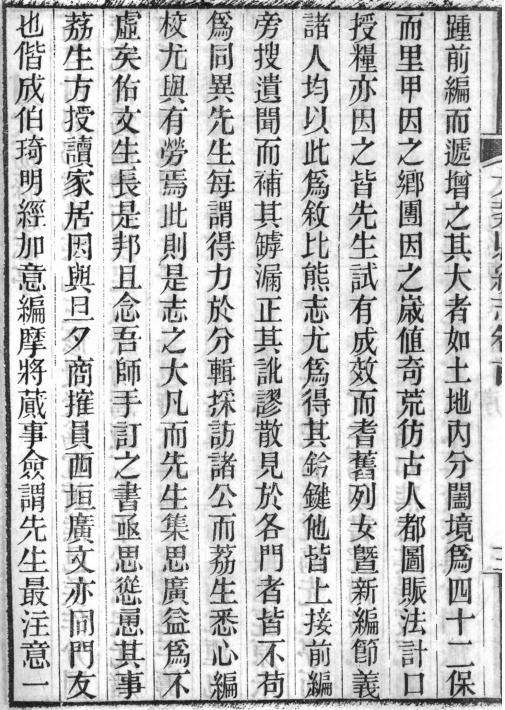 踵前編而遞增之其大者如土地內分闔境爲四十二保
而里甲因之鄉團因之歲值奇荒仿古人都圖賑法計口
授糧亦因之皆先生試有成效而耆舊列女曁新編節義
諸人均以此爲敘比熊志尤爲得其鈐鍵他皆上接前編
旁搜遺聞而補其罅漏正其訛謬散見於各門者皆不苟
爲同異先生每謂得力於分輯採訪諸公而荔生悉心編
校尤與有勞焉此則是志之大凡而先生集思廣益爲不
虛矣佑文生長是邦且念吾師手訂之書亟思慫恿其事
荔生方授讀家居因與旦夕商搉員西垣廣文亦同門友
也偕成伯琦明經加意編摩將蕆事僉謂先生最注意一